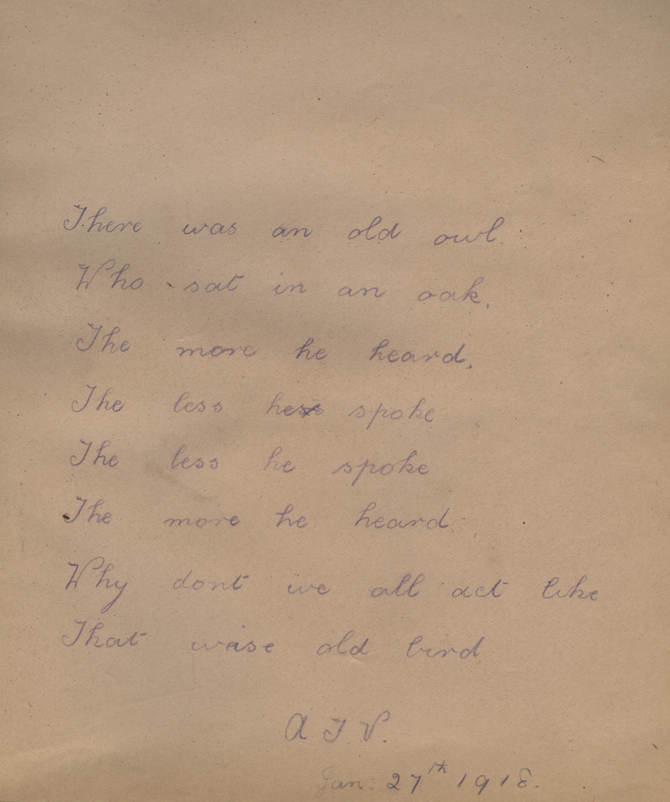 There was an old owl.
Who sat in an oak.
The more he heard.
The less he spoke
The less he spoke
The more he heard.
Why dont we all act like
That wise old bird
A J V.
Jan. 27th 1918.